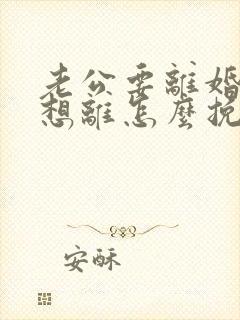 老公要離婚
想離怎麼挽
安酥